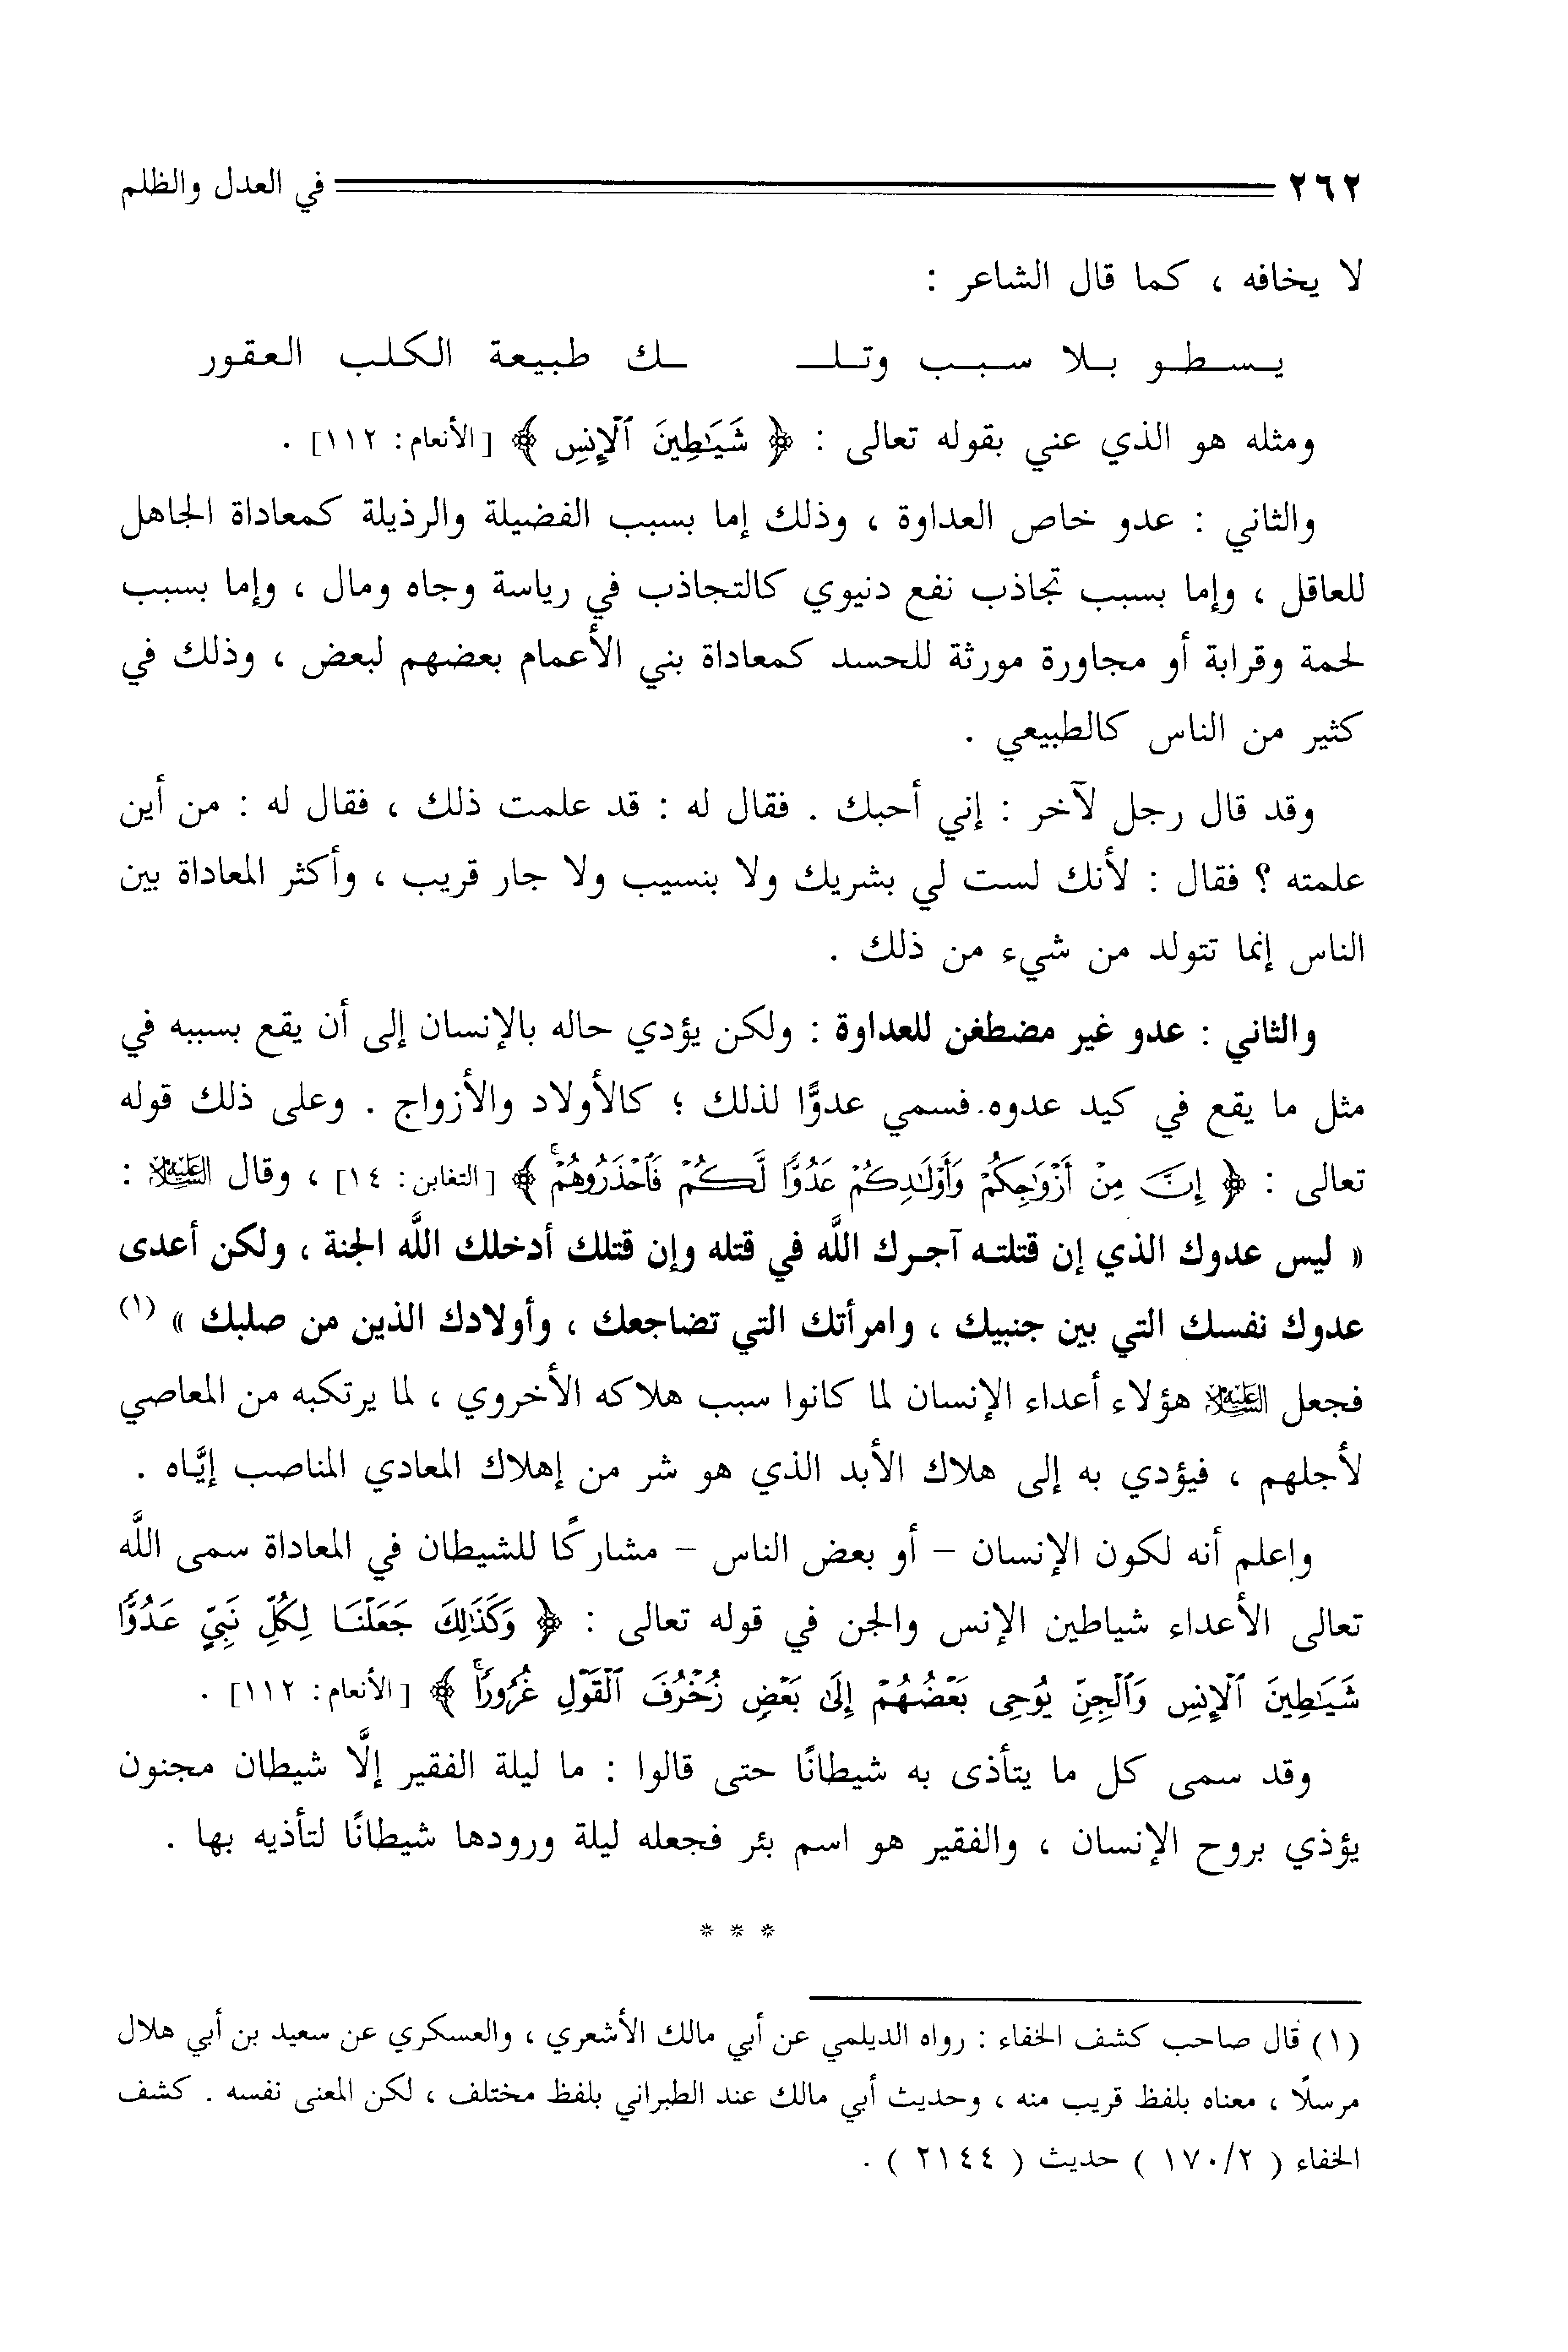 ٢٦٢ في العدل والظلم
لا يخافه ، كما قال الشاعر :
يـسـطـو بـلا سـبـب وتـلـ ـك طبيعة الكلب العقور
ومثله هو الذي عني بقوله تعالى : ﴿ شَيَـٰطِينَ ٱلْإِنسِ ﴾ [الأنعام: ١١٢] .
والثاني : عدو خاص العداوة ، وذلك إما بسبب الفضيلة والرذيلة كمعاداة الجاهل
للعاقل ، وإما بسبب تجاذب نفع دنيوي كالتجاذب في رياسة وجاه ومال ، وإما بسبب
لحمة وقرابة أو مجاورة مورثة للحسد كمعاداة بني الأعمام بعضهم لبعض ، وذلك في
كثير من الناس كالطبيعي .
وقد قال رجل لآخر : إني أحبك . فقال له : قد علمت ذلك ، فقال له : من أين
علمته ؟ فقال : لأنك لست لي بشريك ولا بنسيب ولا جار قريب ، وأكثر المعاداة بين
الناس إنما تتولد من شيء من ذلك .
والثاني : عدو غير مضطغن للعداوة : ولكن يؤدي حاله بالإنسان إلى أن يقع بسببه في
مثل ما يقع في كيد عدوه. فسمي عدوًّا لذلك ؛ كالأولاد والأزواج . وعلى ذلك قوله
تعالى : ﴿ إِنَّ مِنْ أَزْوَٰجِكُمْ وَأَوْلَـٰدِكُمْ عَدُوًّا لَّكُمْ فَٱحْذَرُوهُمْ ۚ ﴾ [التغابن: ١٤] ، وقال عليه السلام :
« ليس عدوك الذي إن قتلته آجرك اللَّه في قتله وإن قتلك أدخلك اللَّه الجنة ، ولكن أعدى
عدوك نفسك التي بين جنبيك ، وامرأتك التي تضاجعك ، وأولادك الذين من صلبك » (١)
فجعل عليه السلام هؤلاء أعداء الإنسان لما كانوا سبب هلاكه الأخروي ، لما يرتكبه من المعاصي
لأجلهم ، فيؤدي به إلى هلاك الأبد الذي هو شر من إهلاك المعادي المناصب إيَّاه .
واعلم أنه لكون الإنسان – أو بعض الناس – مشاركًا للشيطان في المعاداة سمى اللَّه
تعالى الأعداء شياطين الإنس والجن في قوله تعالى : ﴿ وَكَذَٰلِكَ جَعَلْنَا لِكُلِّ نَبِيٍّ عَدُوًّا
شَيَـٰطِينَ ٱلْإِنسِ وَٱلْجِنِّ يُوحِى بَعْضُهُمْ إِلَىٰ بَعْضٍ زُخْرُفَ ٱلْقَوْلِ غُرُورًا ۚ ﴾ [الأنعام: ١١٢] .
وقد سمى كل ما يتأذى به شيطانًا حتى قالوا : ما ليلة الفقير إلَّا شيطان مجنون
يؤذي بروح الإنسان ، والفقير هو اسم بئر فجعله ليلة ورودها شيطانًا لتأذيه بها .
* * *
(١) قال صاحب كشف الخفاء : رواه الديلمي عن أبي مالك الأشعري ، والعسكري عن سعيد بن أبي هلال
مرسلًا ، معناه بلفظ قريب منه ، وحديث أبي مالك عند الطبراني بلفظ مختلف ، لكن المعنى نفسه . كشف
الخفاء ( ١٧٠/٢ ) حديث ( ٢١٤٤ ) .